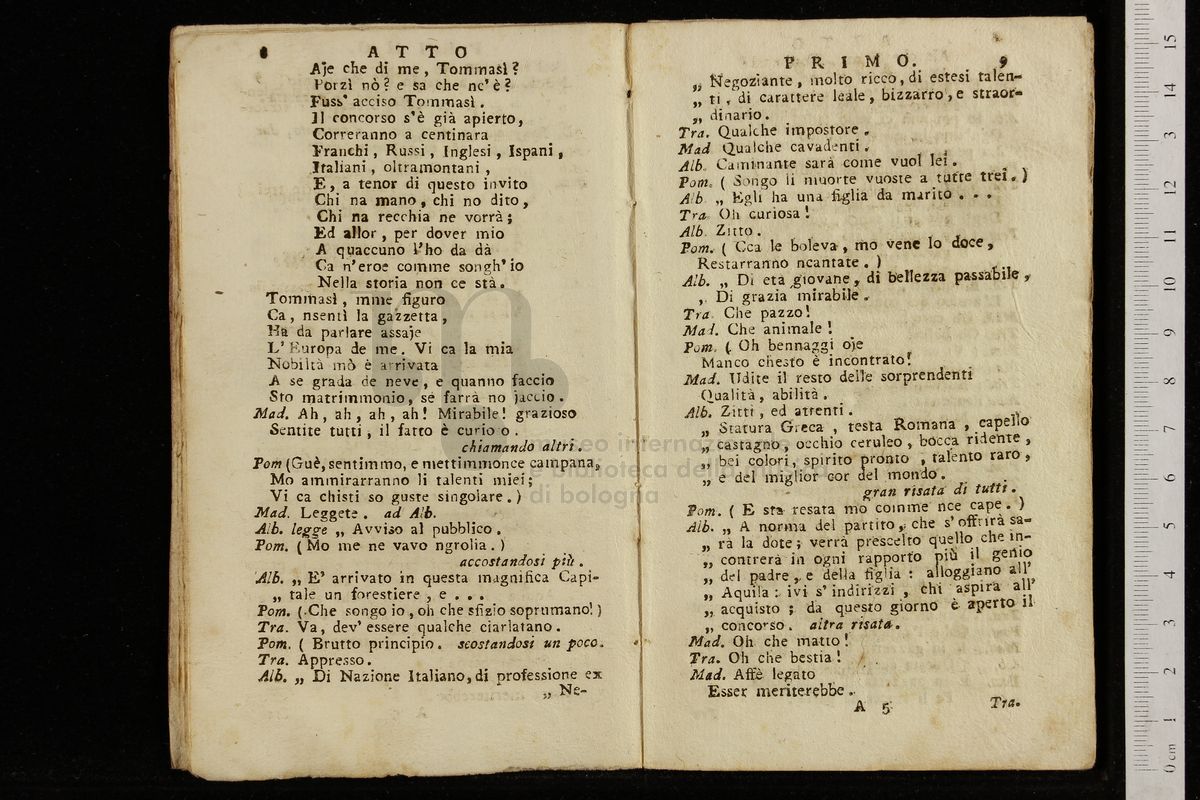 8 ATTO
Aje che di me, Tommasì?
Porzì nò? e sa che nc'è?
Fuss' acciso Tommasì.
Il concorso s'è già apierto,
Correranno a centinara
Franchi, Russi, Inglesi, Ispani,
Italiani, oltramontani,
E, a tenor di questo invito
Chi na mano, chi no dito,
Chi na recchia ne vorrà;
Ed allor, per dover mio
A quaccuno l'ho da dà
Ca n'eroe comme songh'io
Nella storia non ce stà.
Tommasì, mme figuro
Ca, nsentì la gazzetta,
Ha da parlare assaje
L'Europa de me. Vi ca la mia
Nobiltà mò è arrivata
A se grada de neve, e quanno faccio
Sto matrimmonio, se farrà no jaccio.
Mad. Ah, ah, ah, ah! Mirabile! grazioso
Sentite tutti, il fatto è curio o.
chiamando altri.
Pom (Guè, sentimmo, e mettimmonce campana,
Mo ammirarranno li talenti miei;
Vi ca chisti so guste singolare.)
Mad. Leggete. ad Alb.
Alb. legge „ Avviso al pubblico.
Pom. (Mo me ne vavo ngrolia.)
accostandosi più.
Alb. „ E' arrivato in questa magnifica Capi-
„ tale un forestiere, e...
Pom. (Che songo io, oh che sfizio soprumano!)
Tra. Va, dev' essere qualche ciarlatano.
Pom. ( Brutto principio. scostandosi un poco.
Tra. Appresso.
Alb. „ Di Nazione Italiano, di professione ex
„ Ne-
PRIMO. 9
„ Negoziante, molto ricco, di estesi talen-
„ ti, di carattere leale, bizzarro, e straor-
„ dinario.
Tra. Qualche impostore.
Mad Qualche cavadenti.
Alb. Camminante sarà come vuol lei.
Pom. ( Songo li muorte vuoste a tutte trei.)
Alb „ Egli ha una figlia da marito...
Tra. Oh curiosa!
Alb. Zitto.
Pom. ( Cca le boleva, mo vene lo doce,
Restarranno ncantate.)
Alb. „ Di età giovane, di bellezza passabile,
„ Di grazia mirabile.
Tra. Che pazzo!
Mad. Che animale!
Pom. ( Oh bennaggi oje
Manco chesto è incontrato!
Mad. Udite il resto delle sorprendenti
Qualità, abilità.
Alb. Zitti, ed attenti.
„ Statura Greca, testa Romana, capello
„ castagno, occhio ceruleo, bocca ridente,
„ bei colori, spirito pronto, talento raro,
„ e del miglior cor del mondo.
gran risata di tutti.
Pom. ( E sta resata mo comme nce cape.)
Alb. „ A norma del partito, che s'offrirà sa-
„ rà la dote; verrà prescelto quello che in-
„ contrerà in ogni rapporto più il genio
„ del padre, e della figlia: alloggiano all'
„ Aquila: ivi s'indirizzi, chi aspira all'
„ acquisto; da questo giorno è aperto il
„ concorso. altra risata.
Mad. Oh che matto!
Tra. Oh che bestia!
Mad. Affè legato
Esser meriterebbe.
A 5 Tra.
museo internazionale
e biblioteca della musica
di bologna